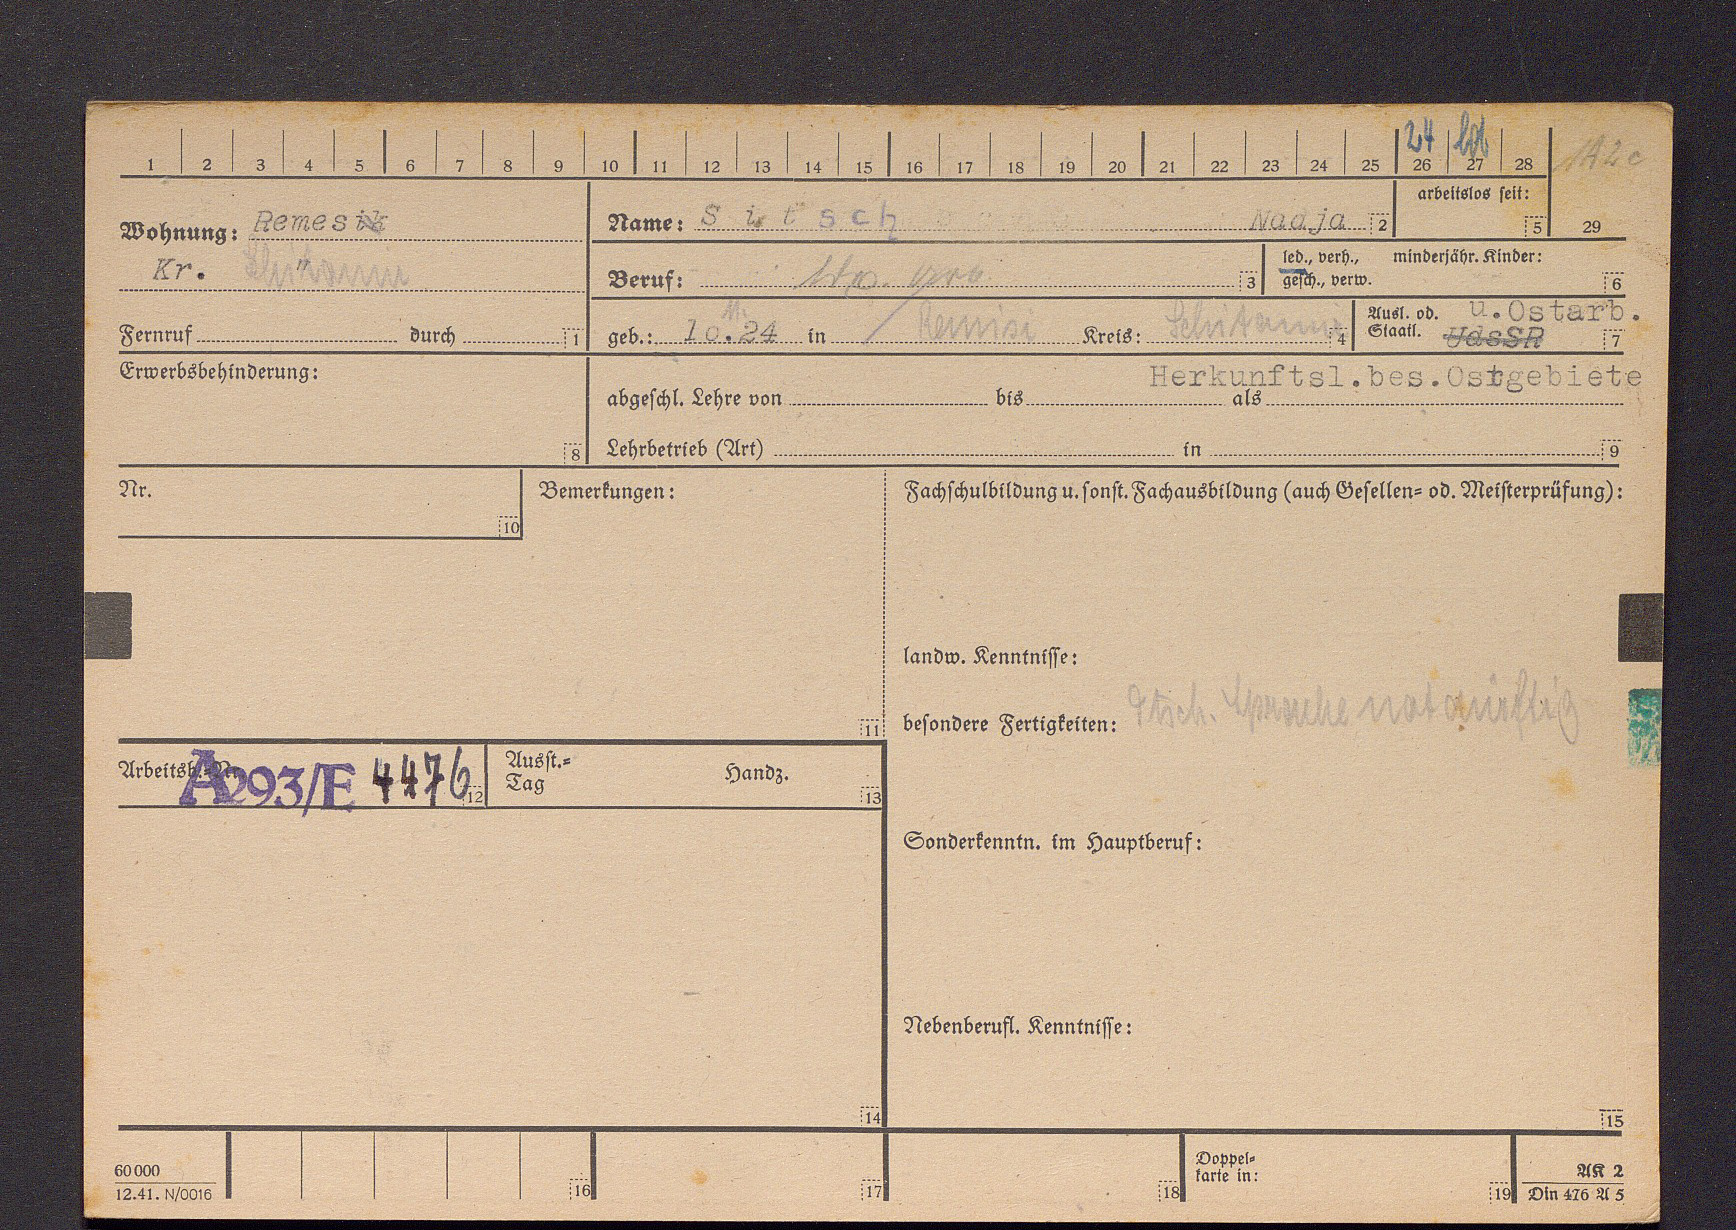 1 2 3 4 5 6 7 8 9 10 11 12 13 14 15 16 17 18 19 20 21 22 23 24 25 26 27 28
24
1A2c
29
Wohnung: Remesik
Kr. "
Fernruf durch 1
Name: Sitsch Nadja 2
arbeitslos seit: 5
Beruf: 3
led., verh., gesch., verw.
minderjähr. Kinder: 6
geb.: 10. 11. 24 in Remisi Kreis: Schitomir 4
Ausl. od. Staatl. u. Ostarb. UdSSR 7
Erwerbsbehinderung: 8
Herkunftsl.bes.Ostgebiete
abgeschl. Lehre von bis als
Lehrbetrieb (Art) in 9
Nr. 10
Bemerkungen: 11
Fachschulbildung u. sonst. Fachausbildung (auch Gesellen= od. Meisterprüfung):
landw. Kenntnisse:
besondere Fertigkeiten: dtsch. Sprache notdürftig
Arbeitsb.=Nr. A293/E 4476 12
Ausst.=Tag Handz. 13
Sonderkenntn. im Hauptberuf:
Nebenberufl. Kenntnisse:
14
15
60000
12.41. N/0016
16
17
18
Doppel=
karte in:
19
AK 2
Din 476 A 5